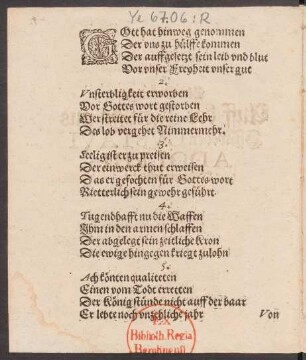 Ye 6706:R
GOtt hat hinweg genommen
Der vns zu hülff kommen
Der auffgesetzt sein leib vnd blut
Vor vnser Freyheit vnser gut
2.
Vnsterbligkeit erworben
Vor Gottes wort gestorben
Verstreitet für die reine Lehr
Des lob vergehet Nimmermehr.
3.
Heilig ist er zu preisen
Der ein werck thut erweisen
Das er gefochten für Gottes wort
Rietterlich sein gewehr geführt
4.
Tugendhafft nu die Waffen
Ihm in den armen schlaffen
Der abgelegt sein zeitliche Kron
Die ewige hingegen kriegt zu lohn
5.
Ach könten qualiteten
Einen vom Todt erretten
Der König stünde nicht auff der baar
Er lebte noch vnzehliche jahr
Von
EX
Biblioth. Regia
Berolinensi